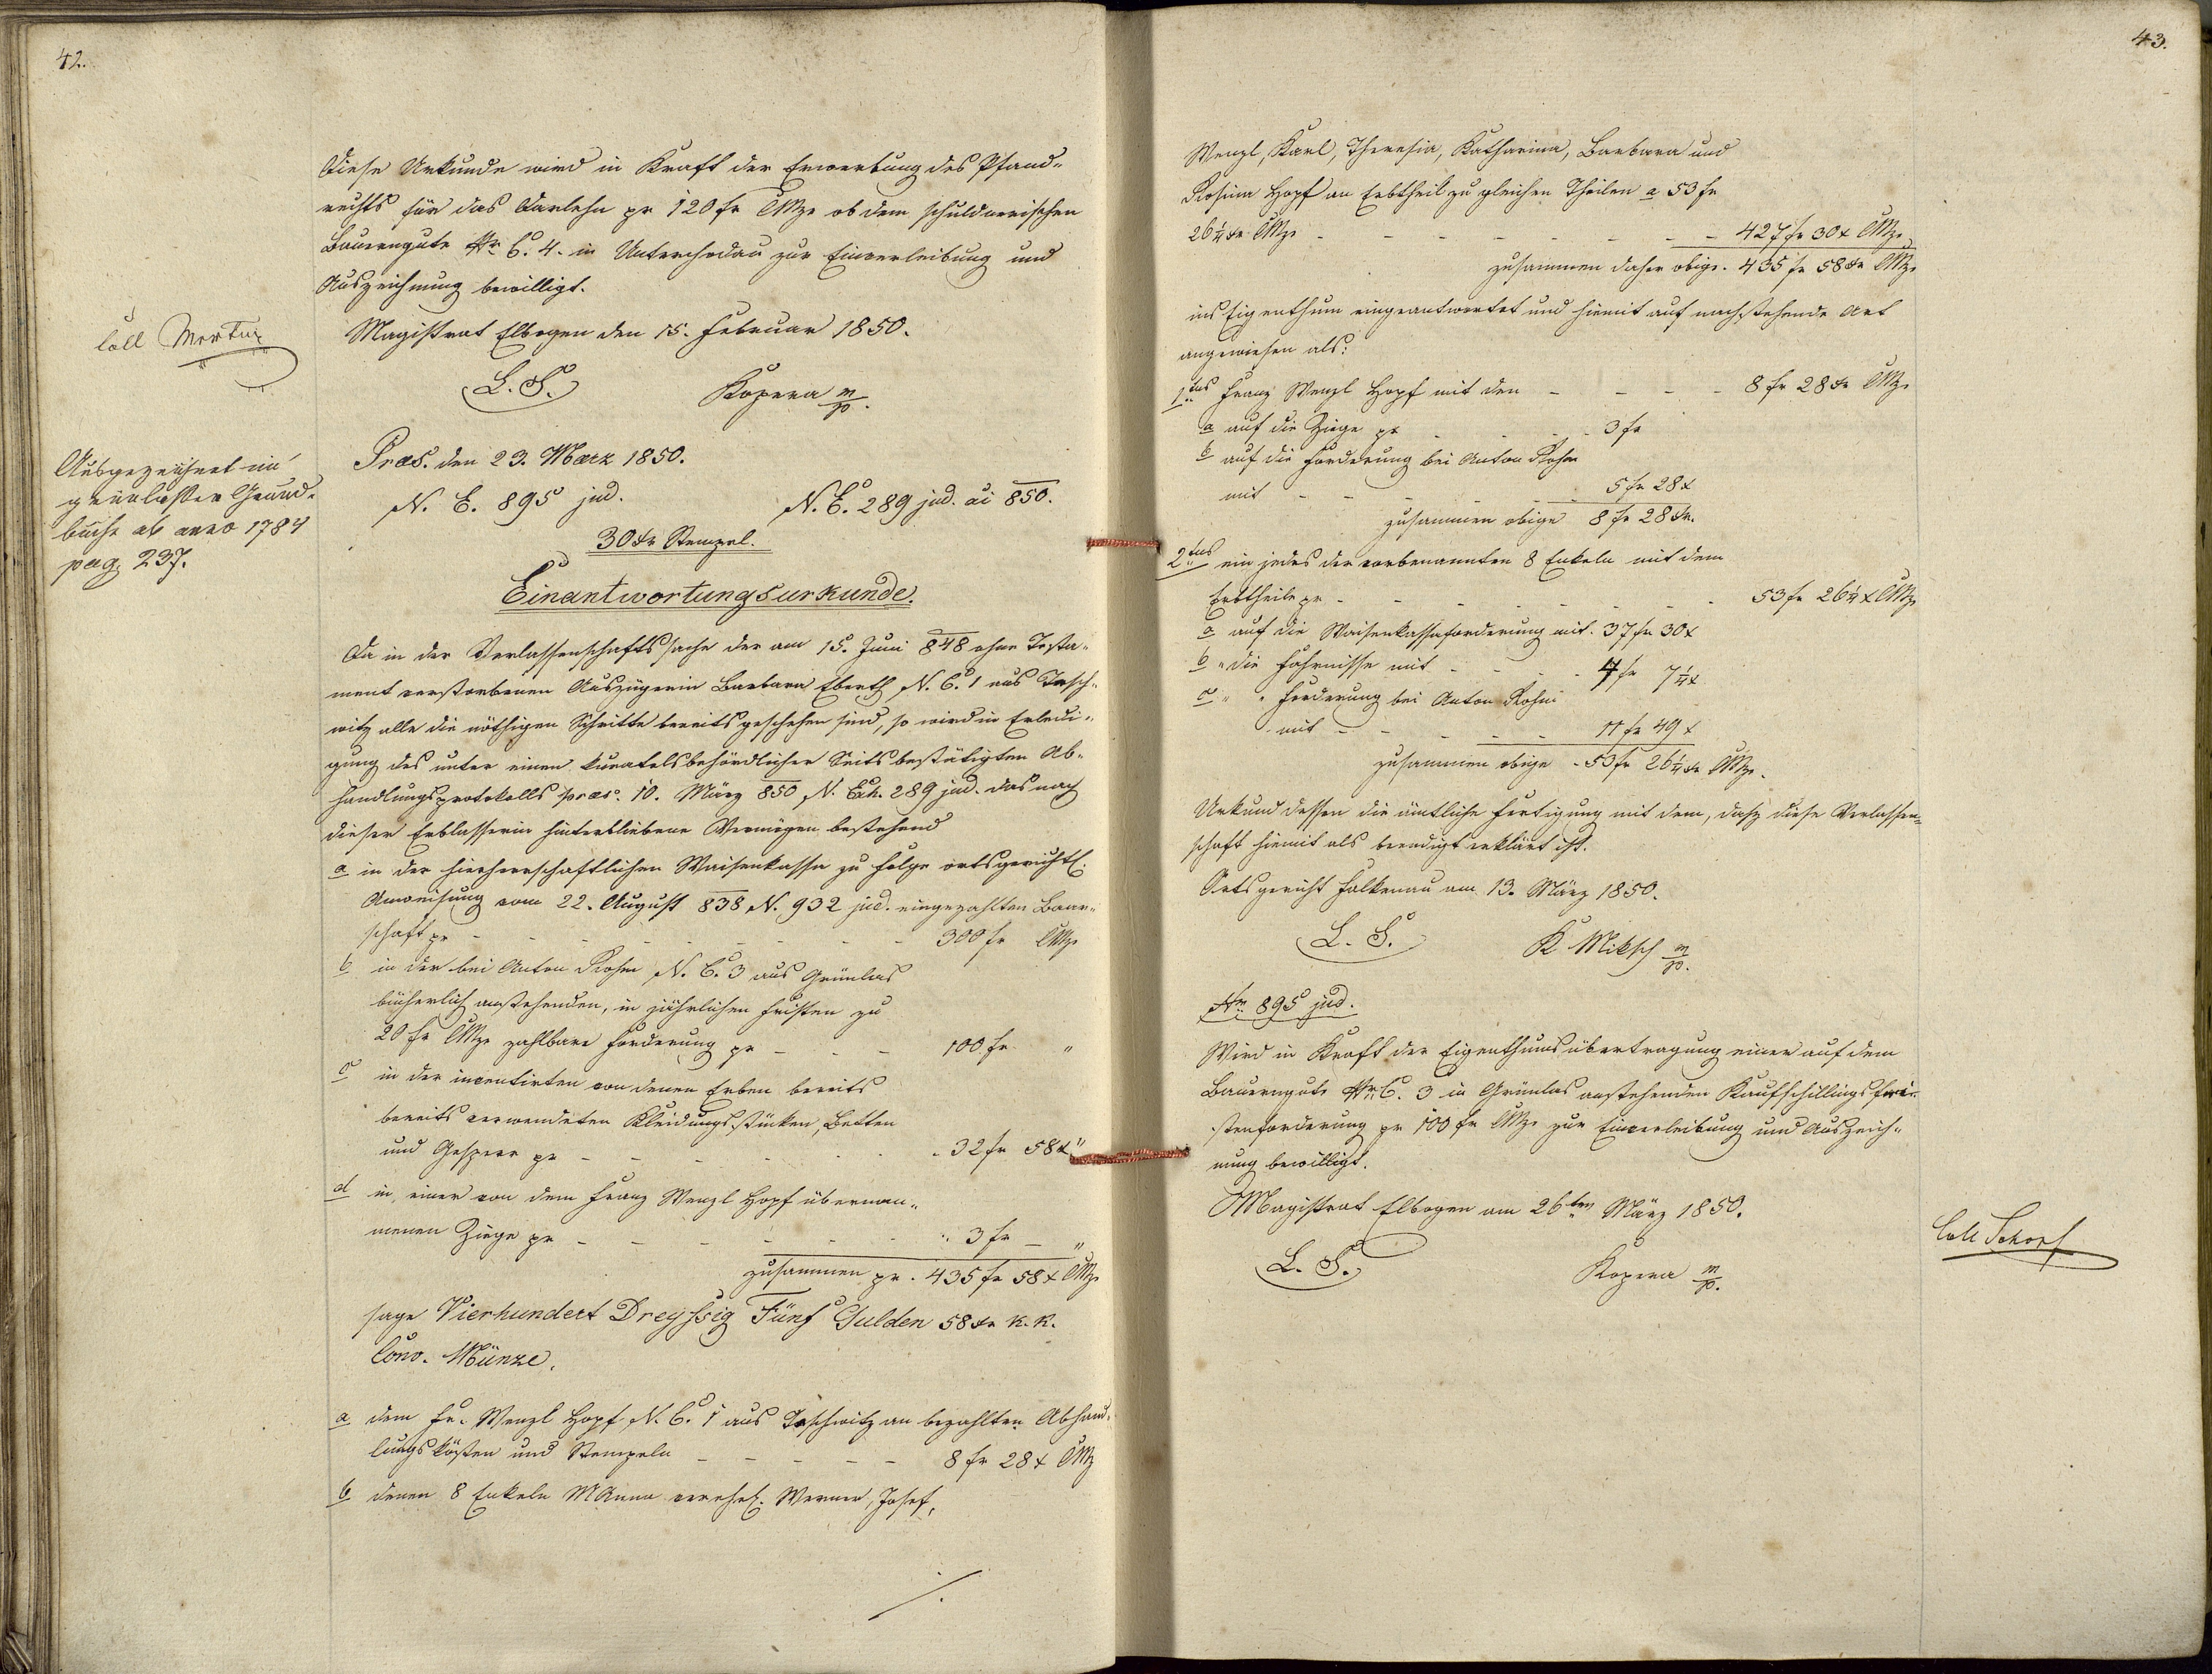 42.
Diese Urkunde wird in Kraft der Erwerbung des Pfand-
rechts für das Darlehn pr 120 fr CMze ob dem schuldnerischen
Bauerngute Nr. C. 4. in Unterchodau zur Einverleibung und
Auszeichnung bewilligt.
Magistrat Elbogen den 15. Februar 1850.
coll
L. S. Kopera m/p.
Ausgezeichnet im
grünlasser Grund-
buche ab anno 1784
pag. 237.
Præs. den 23. Maerz 1850.
N. E. 895 jud. N. E. 289 jud. ai 850.
30 xr Stempel.
Einantwortungsurkunde.
Da in der Verlassenschaftssache der am 15. Juni 848 ohne Testa-
ment verstorbenen Auszügerin Barbara Eberth N. C. 1 aus Tasch-
witz alle die nöthigen Schritte bereits geschehen sind, so wird in Erledi-
gung des unter einen kuratelsbehördlicher Seits bestätigten Ab-
handlungsprotokolls præs. 10. März 850 N. Exh. 289 jud. das nach
dieser Erblasserin hinterbliebene Vermögen bestehend
a in der hierherrschaftlichen Waisenkasse zu Folge ortsgerichtl.
Anweisung vom 22. August 838 N. 932 jud. eingezahlten Baar-
schaft pr - - - - - - - - 300 fr CMze
b in der bei Anton Rohm N. C. 3 aus Grünlas
bücherlich anstehenden, in jährlichen Fristen zu
20 fr CMze zahlbare Forderung pr - - - 100 fr "
c in der inventirten von denen Erben bereits
bereits verwendeten Kleidungsstücken, Betten
und Gesperr pr - - - - - - 32 fr 58 x "
d in einer von dem Franz Wenzl Hopf übernom-
menen Ziege pr - - - - - - 3 fr — "
zusammen pr. 435 fr 58 x CMze
sage Vierhundert Dreyssig Fünf Gulden 58 xr K. K.
Conv. Münze.
a dem Fr. Wenzl Hopf N. C. 1 aus Taschwitz an bezahlten Abhand-
lungskösten und Stempeln - - - - - 8 fr 28 x CMz
b denen 8 Enkeln MAnna verehel. Werner, Josef,
./.
43.
Wenzl, Karl, Theresia, Katharina, Barbara und
Rosina Hopf an Erbtheil zu gleichen Theilen a 53 fr
26 1/4 xr CMze - - - - - - - - 427 fr 30 x CMze
zusammen daher obige. 435 fr 58 xr CMze
ins Eigenthum eingeantwortet und hiemit auf nachstehende Art
angewiesen als:
1tens Franz Wenzl Hopf mit den - - - - 8 fr 28 xr CMze
a auf die Ziege pr - - - 3 fr
b auf die Forderung bei Anton Rohm
mit - - - - - 5 fr 28 x
zusammen obige 8 fr 28 xr.
2tens ein jedes der vorbenannten 8 Enkeln mit dem
Erbtheile pr - - - - - - - - 53 fr 26 1/4 x CMze
a auf die Waisenkassaforderung mit. 37 fr 30 x
b " die Fahrnisse mit - - - - 4 fr 7 1/4 x
c " " Forderung bei Anton Rohm
mit - - - - - 11 fr 49 x
zusammen obige - 53 fr 26 1/4 xr CMze.
Urkund dessen die ämtliche Fertigung mit dem, dasz diese Verlassen-
schaft hiemit als beendigt erklärt ist.
Ortsgericht Falkenau am 13. März 1850.
L. S. K Miksch m/p.
Nr. 895 jud.
Wird in Kraft der Eigenthumsübertragung einer auf dem
Bauerngute Nr. C. 3 in Grünlas anstehenden Kaufschillingsfri-
stenforderung pr 100 fr CMze zur Einverleibung und Auszeich-
nung bewilligt.
Magistrat Elbogen am 26ten März 1850.
L. S. Kopera m/p.
Coll